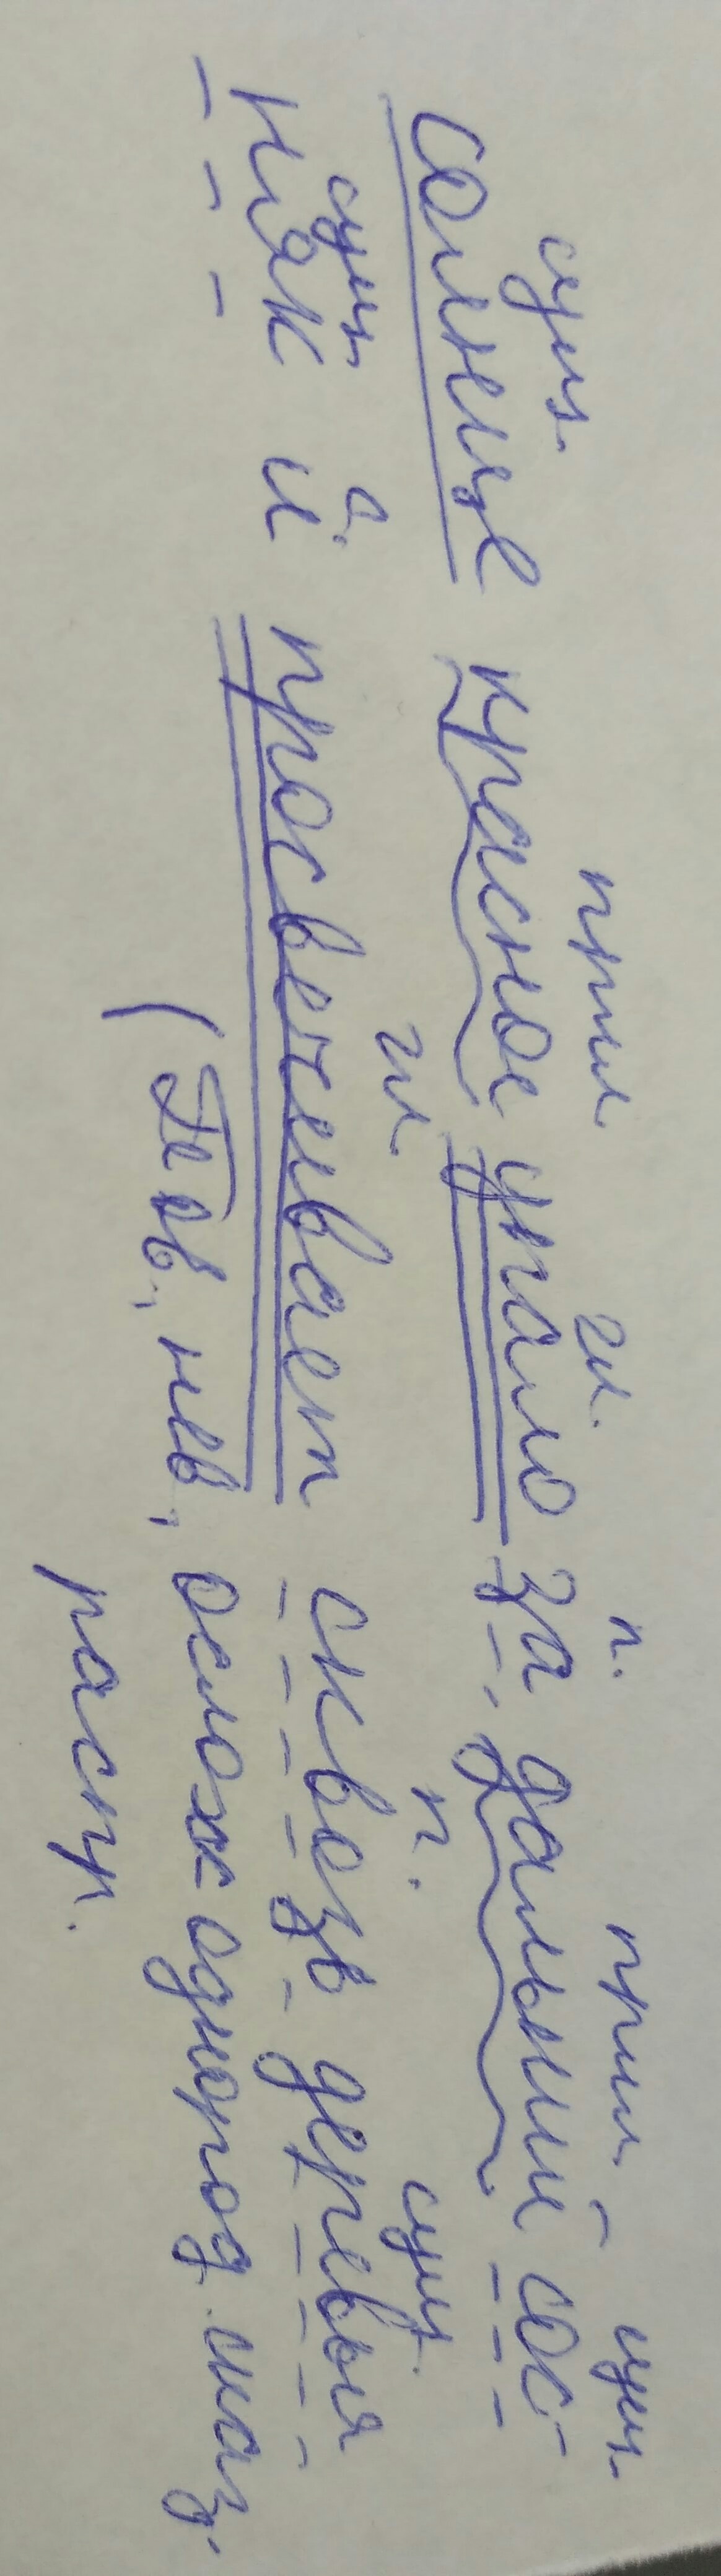 сущ. прил гл. п. прил - сущ.
солнце красное упало за дальний сос-
сущ с. гл п. сущ.
няк и просвечивает сквозь деревья
(Пов., нев., ослож однород. сказ.
распр.